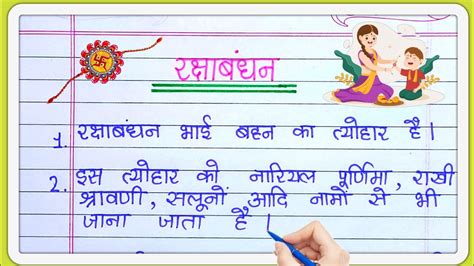 रक्षाबंधन
1. रक्षाबंधन भाई बहन का त्योहार है।
2. इस त्योहार को नारियल पूर्णिमा, राखी
श्रावणी, सलूनों आदि नामों से भी
जाना जाता है।